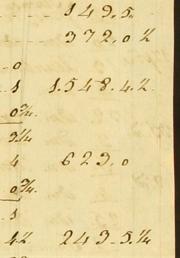 149.5.
372.0½
0
1 1.548.4½.
0¾.
3¼
4 623.0
0¾.
1
4½ 243.5.¼